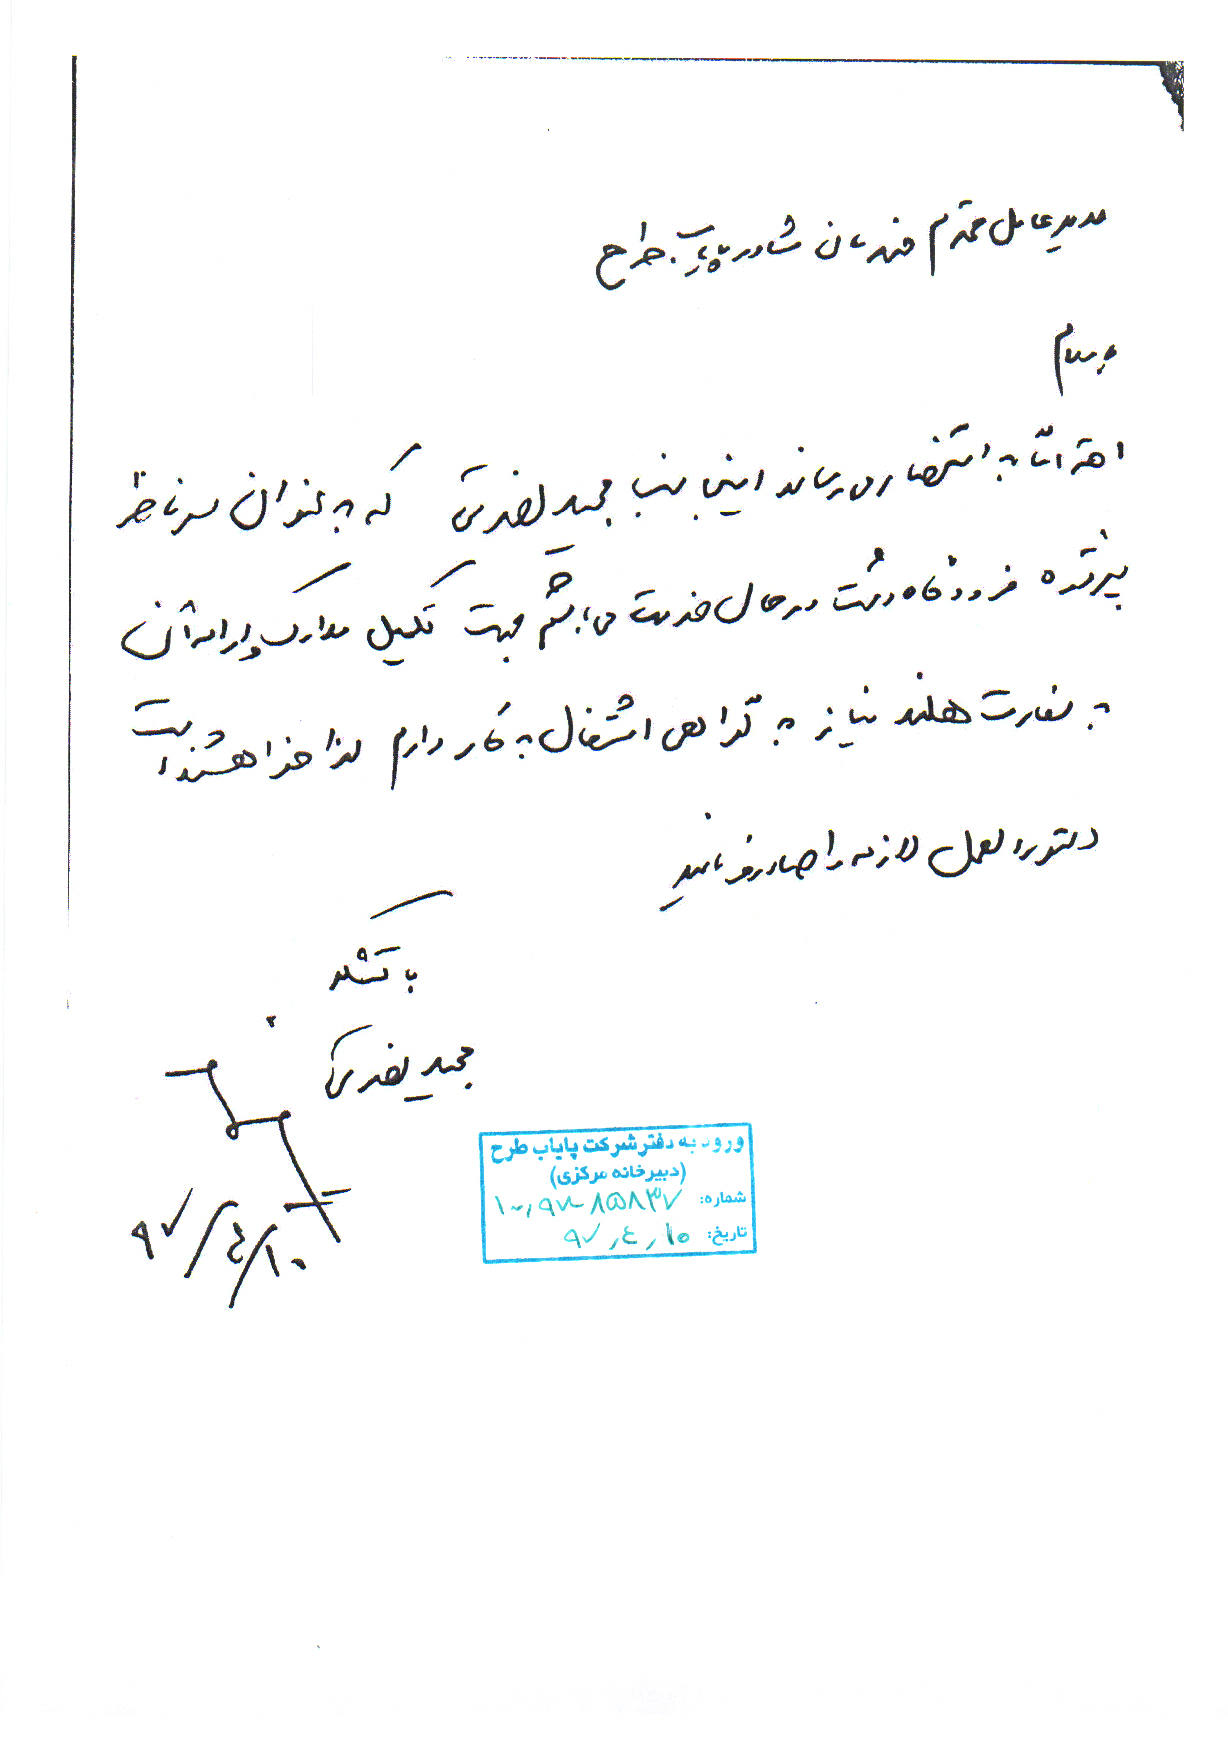 مدیرعامل محترم مهندسان مشاور پایاب طرح
با سلام
احتراماً به استحضار می‌رساند اینجانب مجید نصرتی که به عنوان سرناظر
پروژه فرودگاه رشت در حال خدمت می‌باشم جهت تکمیل مدارک و ارائه آن
به سفارت هلند نیاز به گواهی اشتغال به کار دارم لذا خواهشمند است
دستورالعمل لازمه را صادر فرمائید
با تشکر
مجید نصرتی
۹۷/۴/۱۰
ورود به دفتر شرکت پایاب طرح
(دبیرخانه مرکزی)
شماره: ۱۰,۹۷-۸۵۸۳۷
تاریخ: ۹۷,۴,۱۰